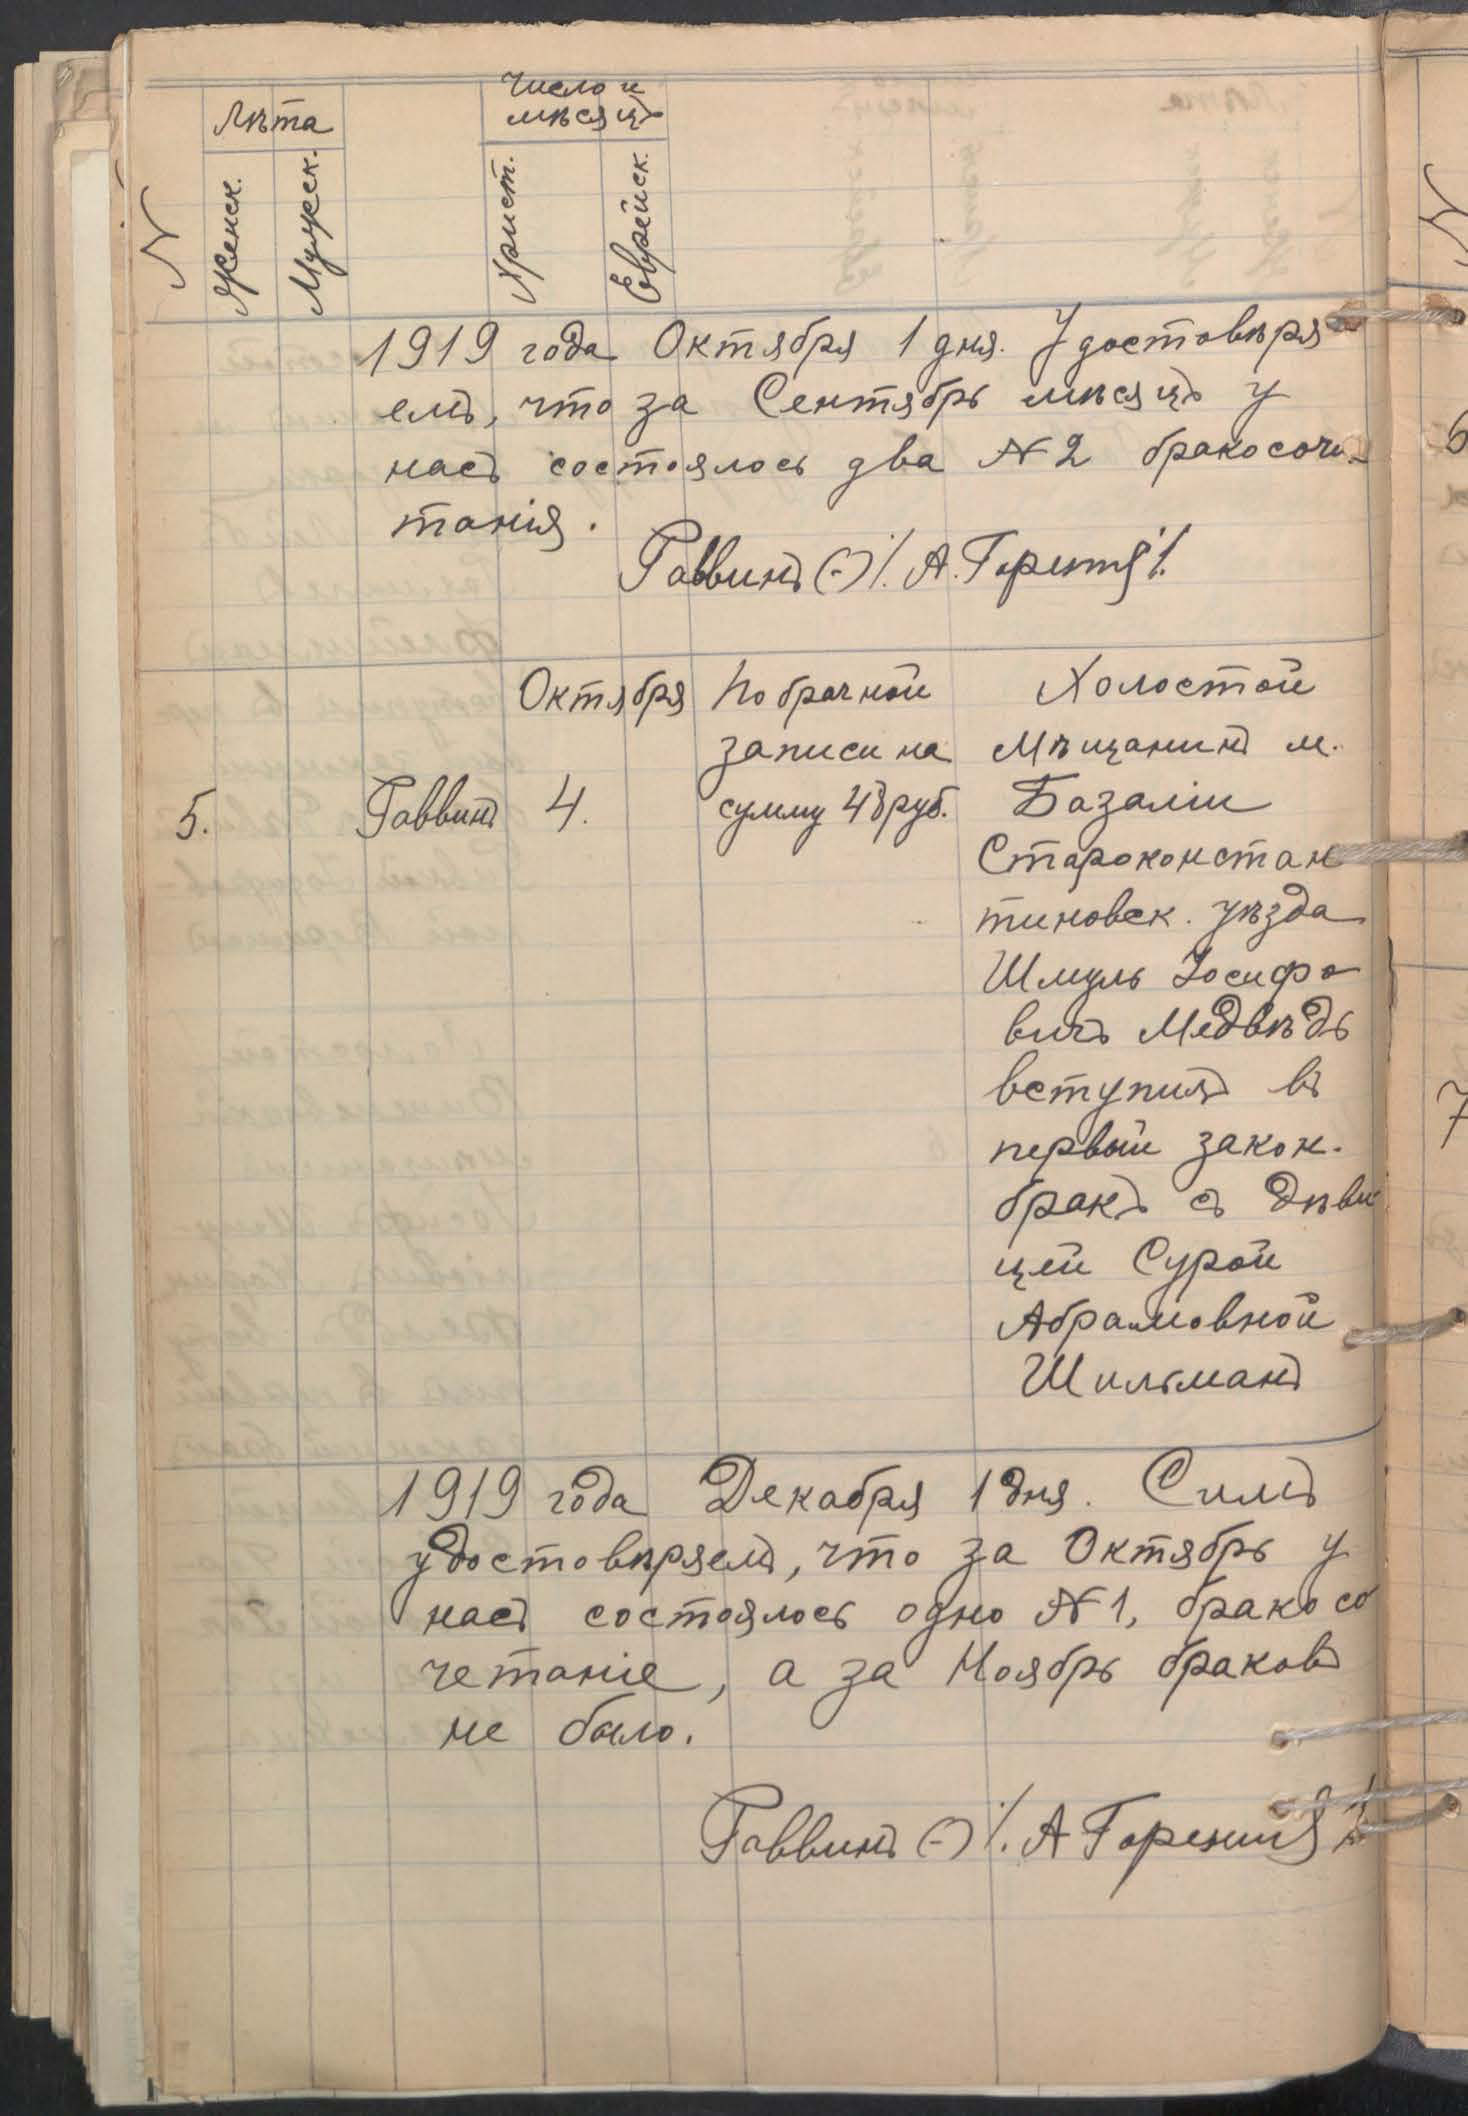 Число и
Лѣта
мѣсяцъ
N
Женск.
Мужск.
Христ.
Еврейск.
1919 года Октября 1 дня. Удостовѣря
емъ, что за Сентябрь мѣсяцъ у
насъ состоялось два N 2 бракосоче-
танія.
Раввинъ (-) /. А. Горенштейнъ /.
Октября
По брачной
записи на
сумму 48 руб.
5.
Раввинъ
4.
Холостой
Мѣщанинъ м.
Базаліи
Староконстан
тиновск. уѣзда
Шмуль Іосифо
вичъ Медвѣдь
вступилъ въ
первый закон.
бракъ съ дѣви
цей Сурой
Абрамовной
Шильманъ
1919 года Декабря 1 дня. Симъ
удостовѣряемъ, что за Октябрь у
насъ состоялось одно N 1, бракосо
четаніе, а за Ноябрь браковъ
не было.
Раввинъ (-) /. А
N
6
7